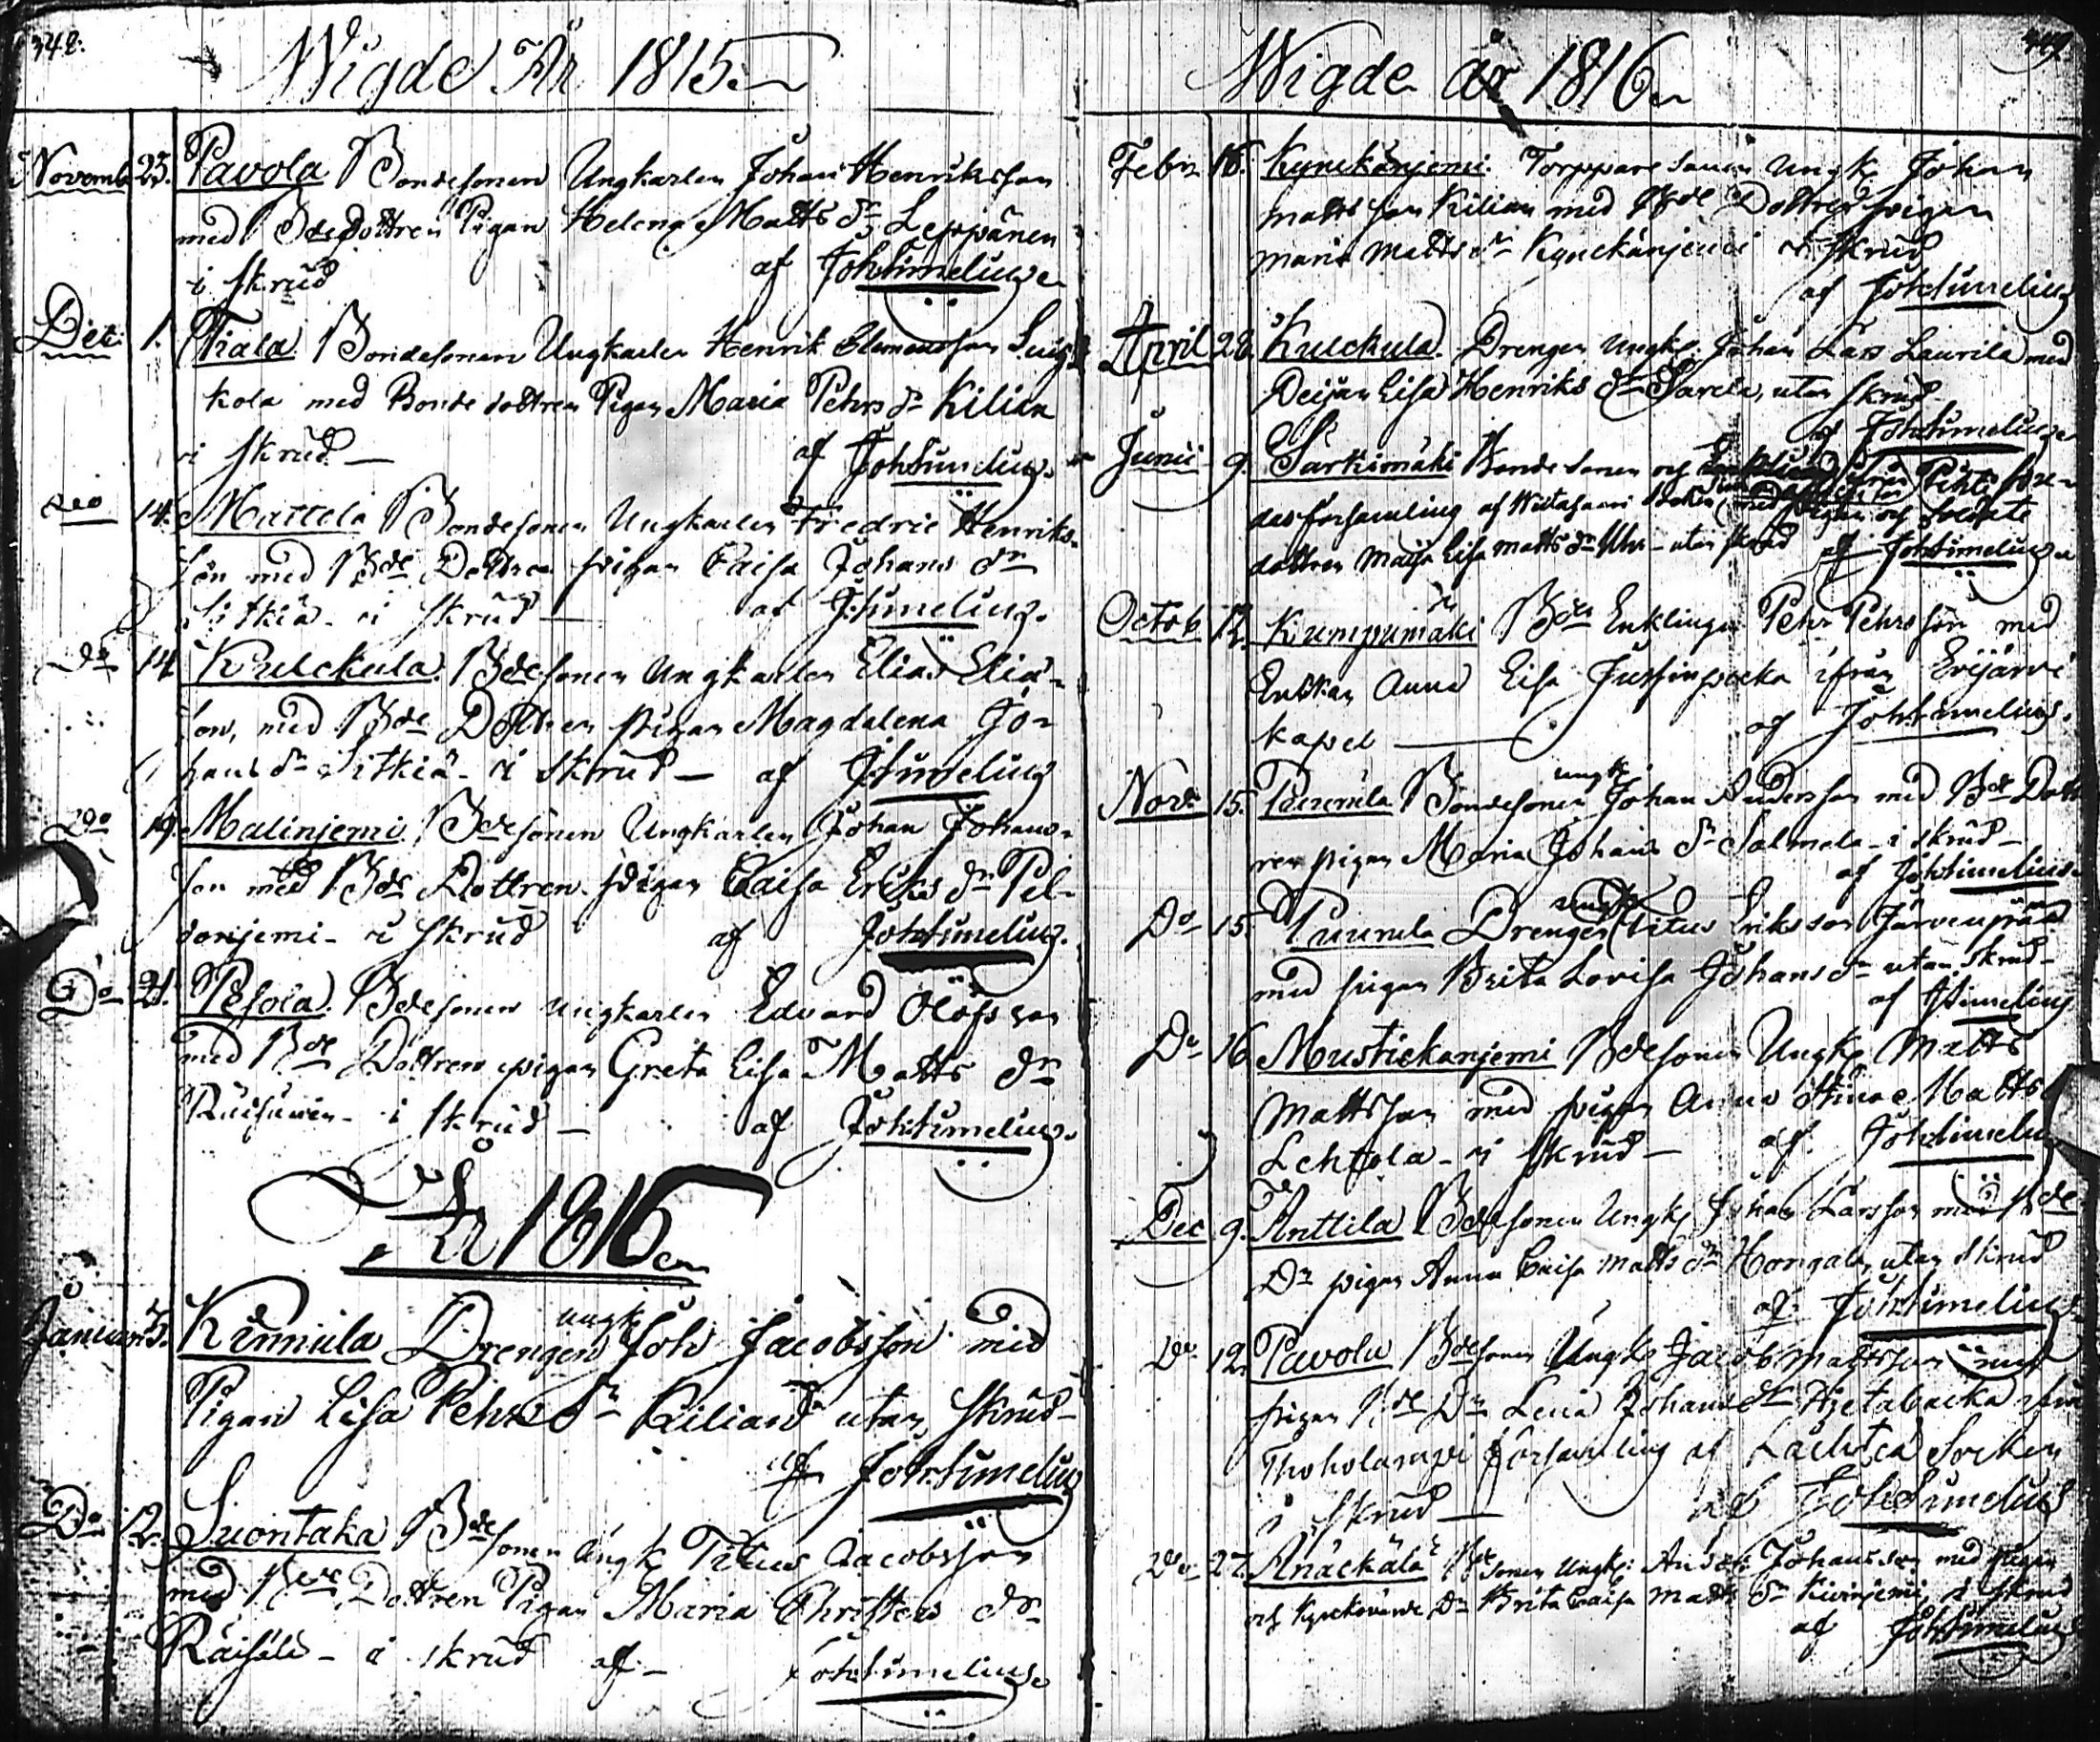 348.
Wigde År 1815.
Novemb 23. Pavola Bondesonen Ungkarlen Johan Henriksson
med Bde Dottren Pigan Helena Matts dr Leppänen
i skrud af Joh Simelius
Dec 1. Tiala Bondesonen Ungkarlen Henrik Clemensson
kola med Bonde dottren Pigan Maria Pehrs dr Kilian
i skrud af Joh Simelius
deo 14. Mattela Bondesonen Ungkarlen Fredric Henriks-
son med Bde Dottren pigan Caisa Johans dr
Sitkiä i skrud af J. Simelius.
Do 14 Kulckula Bdesonen Ungkarlen Elias Elia-
son, med Bde Dottren pigan Magdalena Jo-
hans dr Sitkiä i skrud af J. Simelius
Do 19. Malinjemi Bdesonen Ungkarlen Johan Johans-
son med Bde Dottren pigan Caisa Eriks dr Pel-
donjemi i skrud af Joh Simelius.
Do 21. Pesola Bdesonen ungkarlen Edvard Olofsson
med Bde Dottren pigan Greta Lisa Matts dr
i skrud af Joh Simelius.
År 1816
Januari 5. Kinnula Drengen ungk Joh Jacobsson med
Pigan Lisa Pehrs dr Kilian utan skrud
af Joh Simelius
Do 12. Suontaka Bde sonen Ungk Titus Jacobsson
med Bde Dottren Pigan Maria Christers dr
Räisälä i skrud af Joh Simelius
Wigde år 1816
Febr 16. Kynckänjemi Torppare sonen Ungk Johan
Mattsson Kilian med Bde Dottren pigan
Maria Matts dr Kynckänjemi i skrud
af Joh Simelius
April 28. Kulckula Drengen Ungk. Johan Lars Laurila med
Peijan Lisa Henriks dr Sarela, utan skrud
af Joh Simelius
Junii 9. Särkimäki Bonde sonen och
das församling af Wiitasaari Socken, med pigan og
dottren Maija Lisa Matts dr utan skrud af Joh Simelius
Octob 12. Kumpumäki Bde Enklingen Pehr Pehrsson med
Enkan Anna Lisa ifrån Evijärvi
kapel af Joh Simelius.
Nov. 15. Puumala Bondesonen ungk Johan Andersson med Bde Dott
ren pigan Maria Johans dr Salmela i skrud
af Joh Simelius.
Do 15. Puumala Drengen ungk Titus Eriksson Järvenpää
med pigan Brita Lovisa Johans dr utan skrud
af Simelius
Do 16. Mustickanjemi Bdesonen Ungk Matts
Mattsson med pigan Anna Stina Matts
Lehtola i skrud af Joh Simelius
Dec 9. Anttila Bdesonen Ungk Johan Larsson med Bde
Dr pigan Anna Caisa Matts dr Hongala utan skrud
af Joh Simelius
Do 12. Pavola Bdesonen Ungk Jacob Mattsson med
pigan Bde Dr Lena Johans dr
Thoholampi församling af Lachtea Socken
i skrud af Joh Simelius
Do 27. Knäckälä Bde sonen Ungk: Anders Johansson med pigan
Dr Brita Caisa Matts dr Kivinjemi i skrud
af Joh Simelius